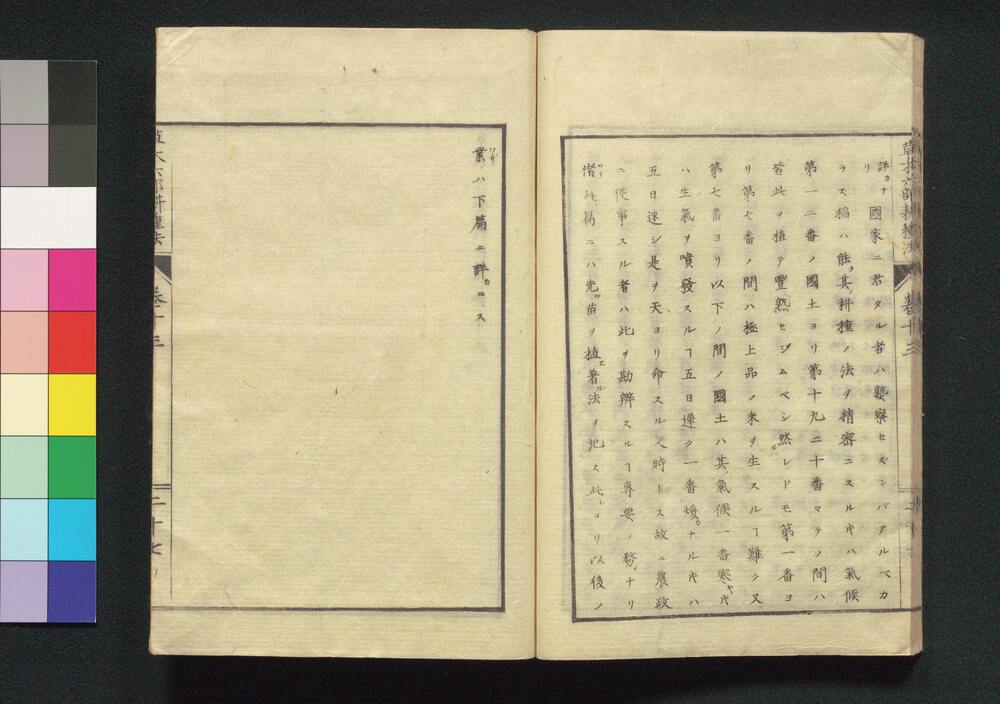 草木六部耕種法 巻十三
詳カナリ國家ニ君タル者ハ熟察セズンバアルベカ
ラス稲ハ能ク其耕種ノ法ヲ精密ニスル𪜈ハ氣候
第一二番ノ國土ヨリ第十九二十番マテノ間ハ
皆此ヲ植テ豐熟セシムベシ然レドモ第一番ヨ
リ第七番ノ間ハ極上品ノ米ヲ生スルヿ難ク又
第七番ヨリ以下ノ間ノ國土ハ其氣候一番寒キ𪜈
ハ生氣ヲ噴發スルヿ五日遲ク一番煖カナル𪜈ハ
五日速シ是ヲ天ヨリ命スル人時トス故ニ農政
ニ従事スル者ハ此ヲ勘辨スルヿ専要ノ務ナリ
偖此篇ニハ先ツ苗ヲ植著ル法ヲ記ス此ヨリ以後ノ
業ハ下篇ニ詳カニス
草木六部耕種法 巻十三 二十七